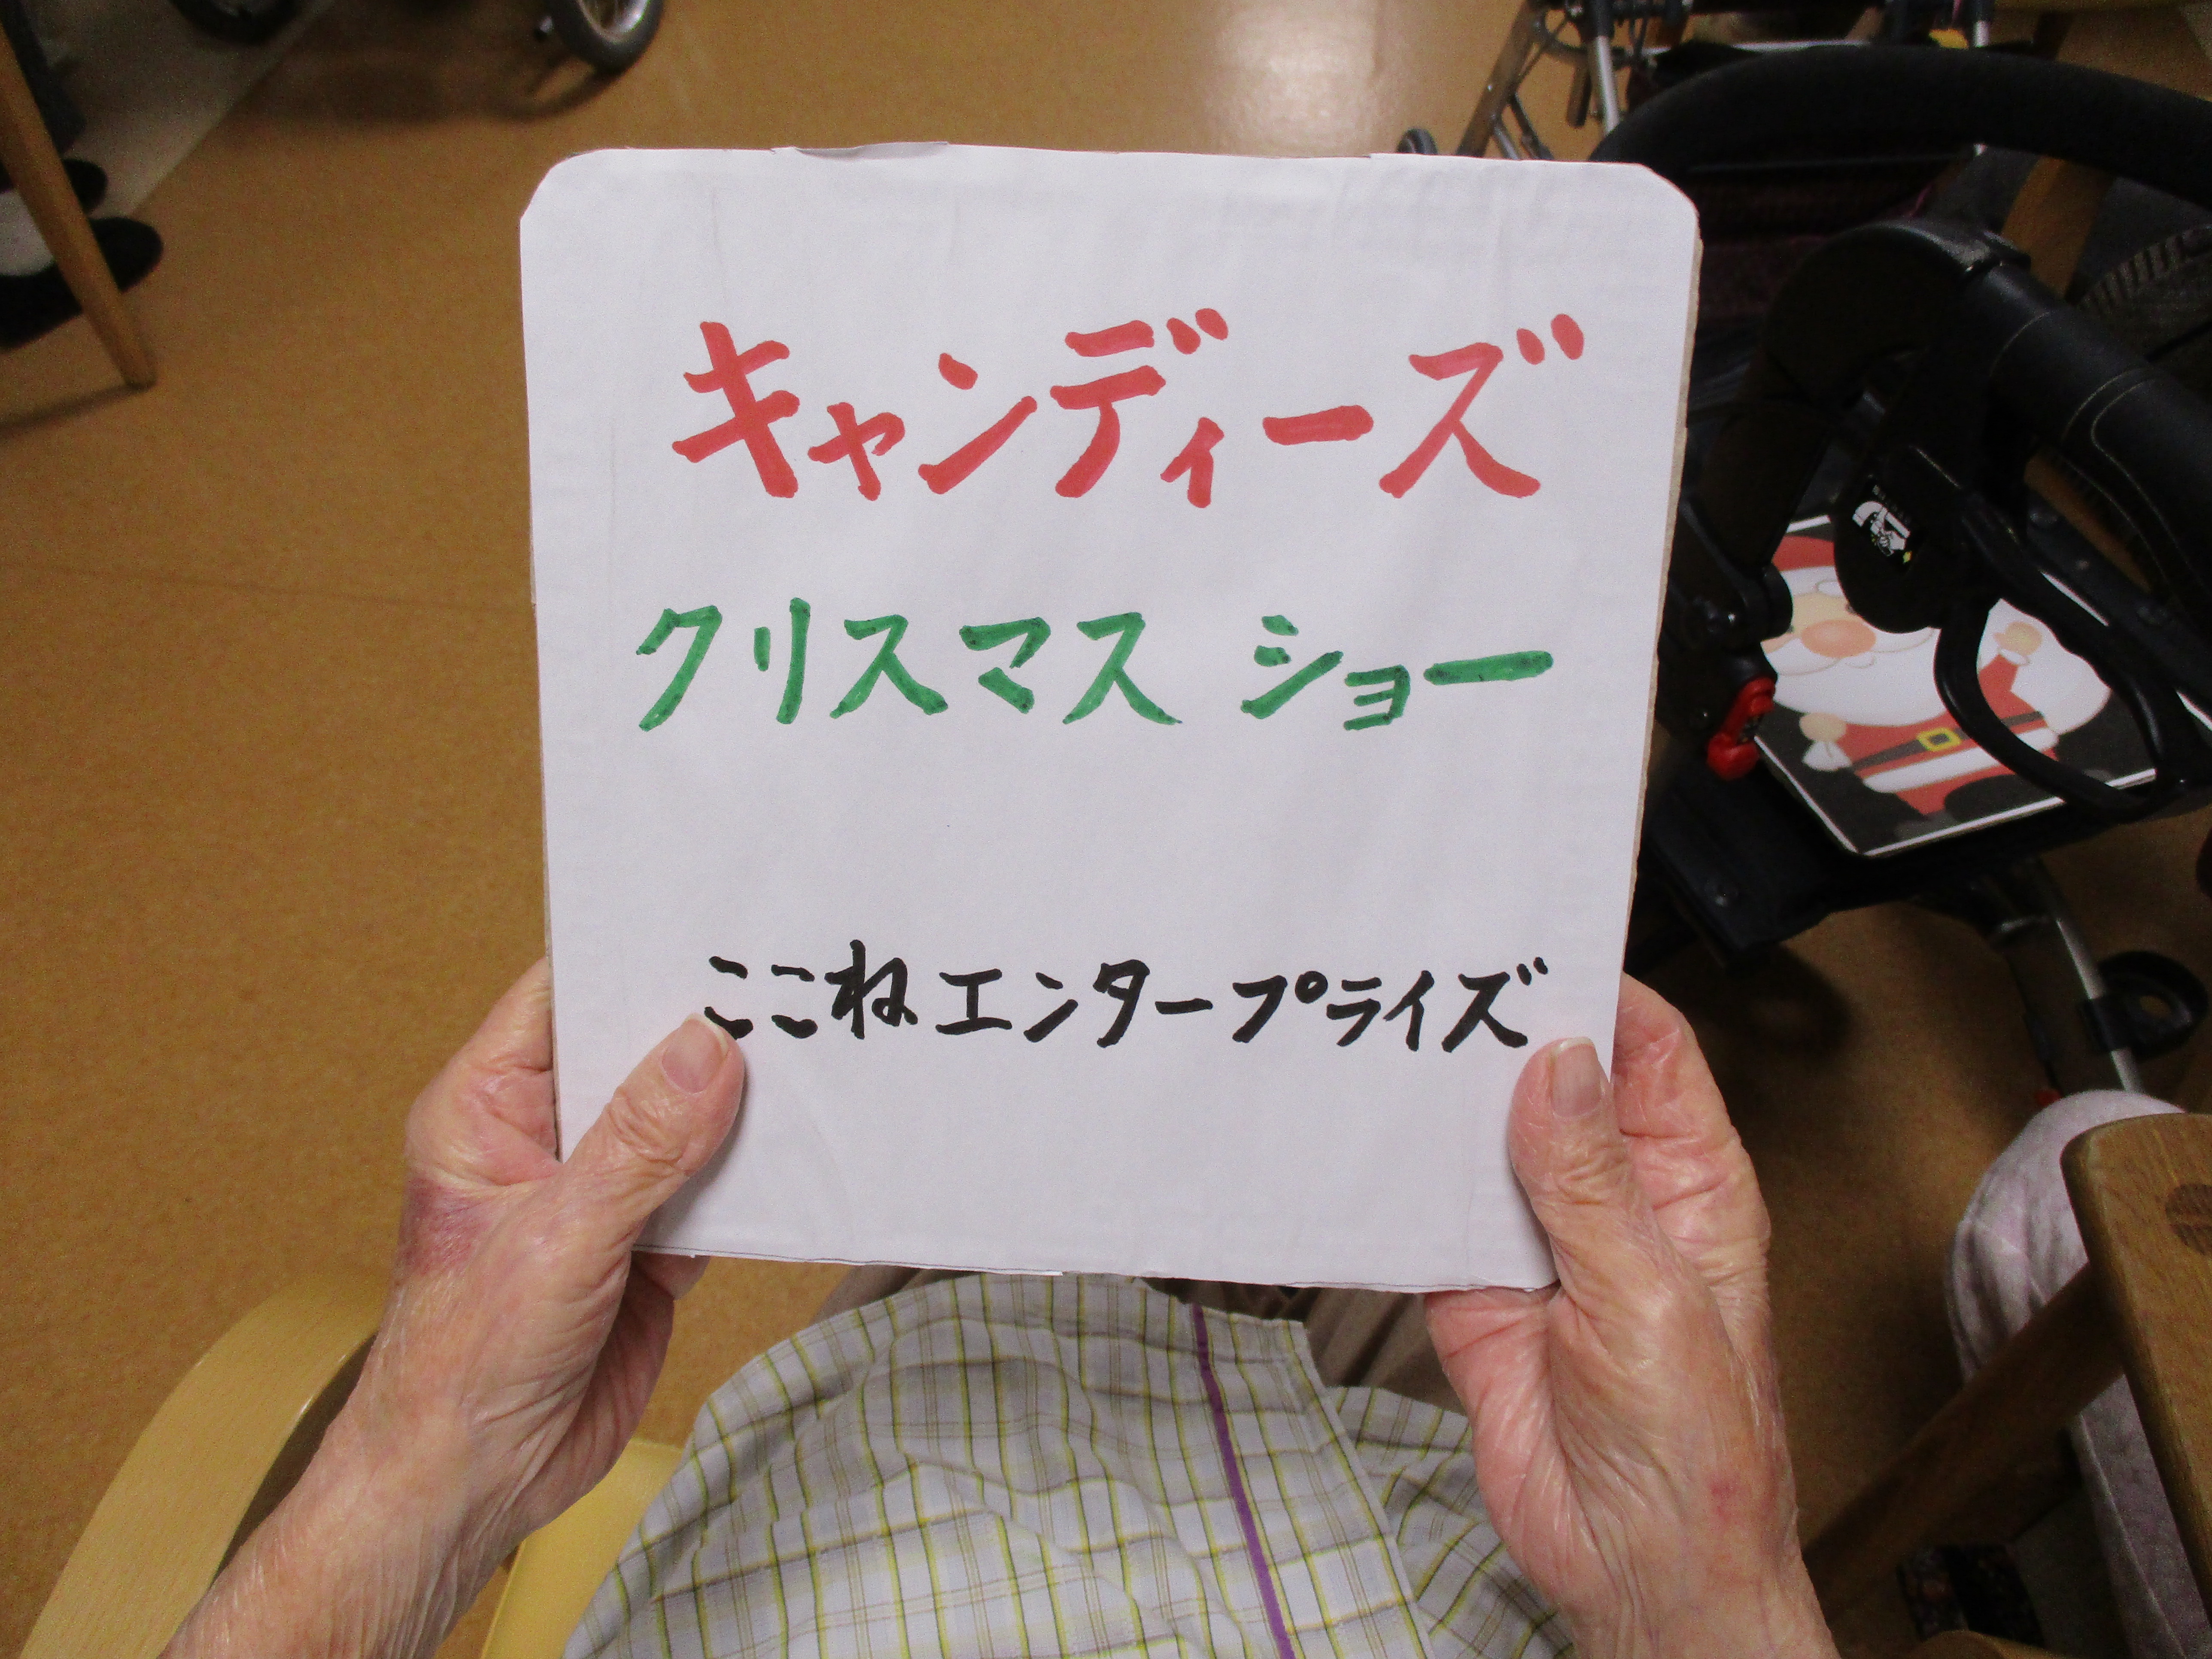 キャンディーズ
クリスマス ショー
ここねエンタープライズ